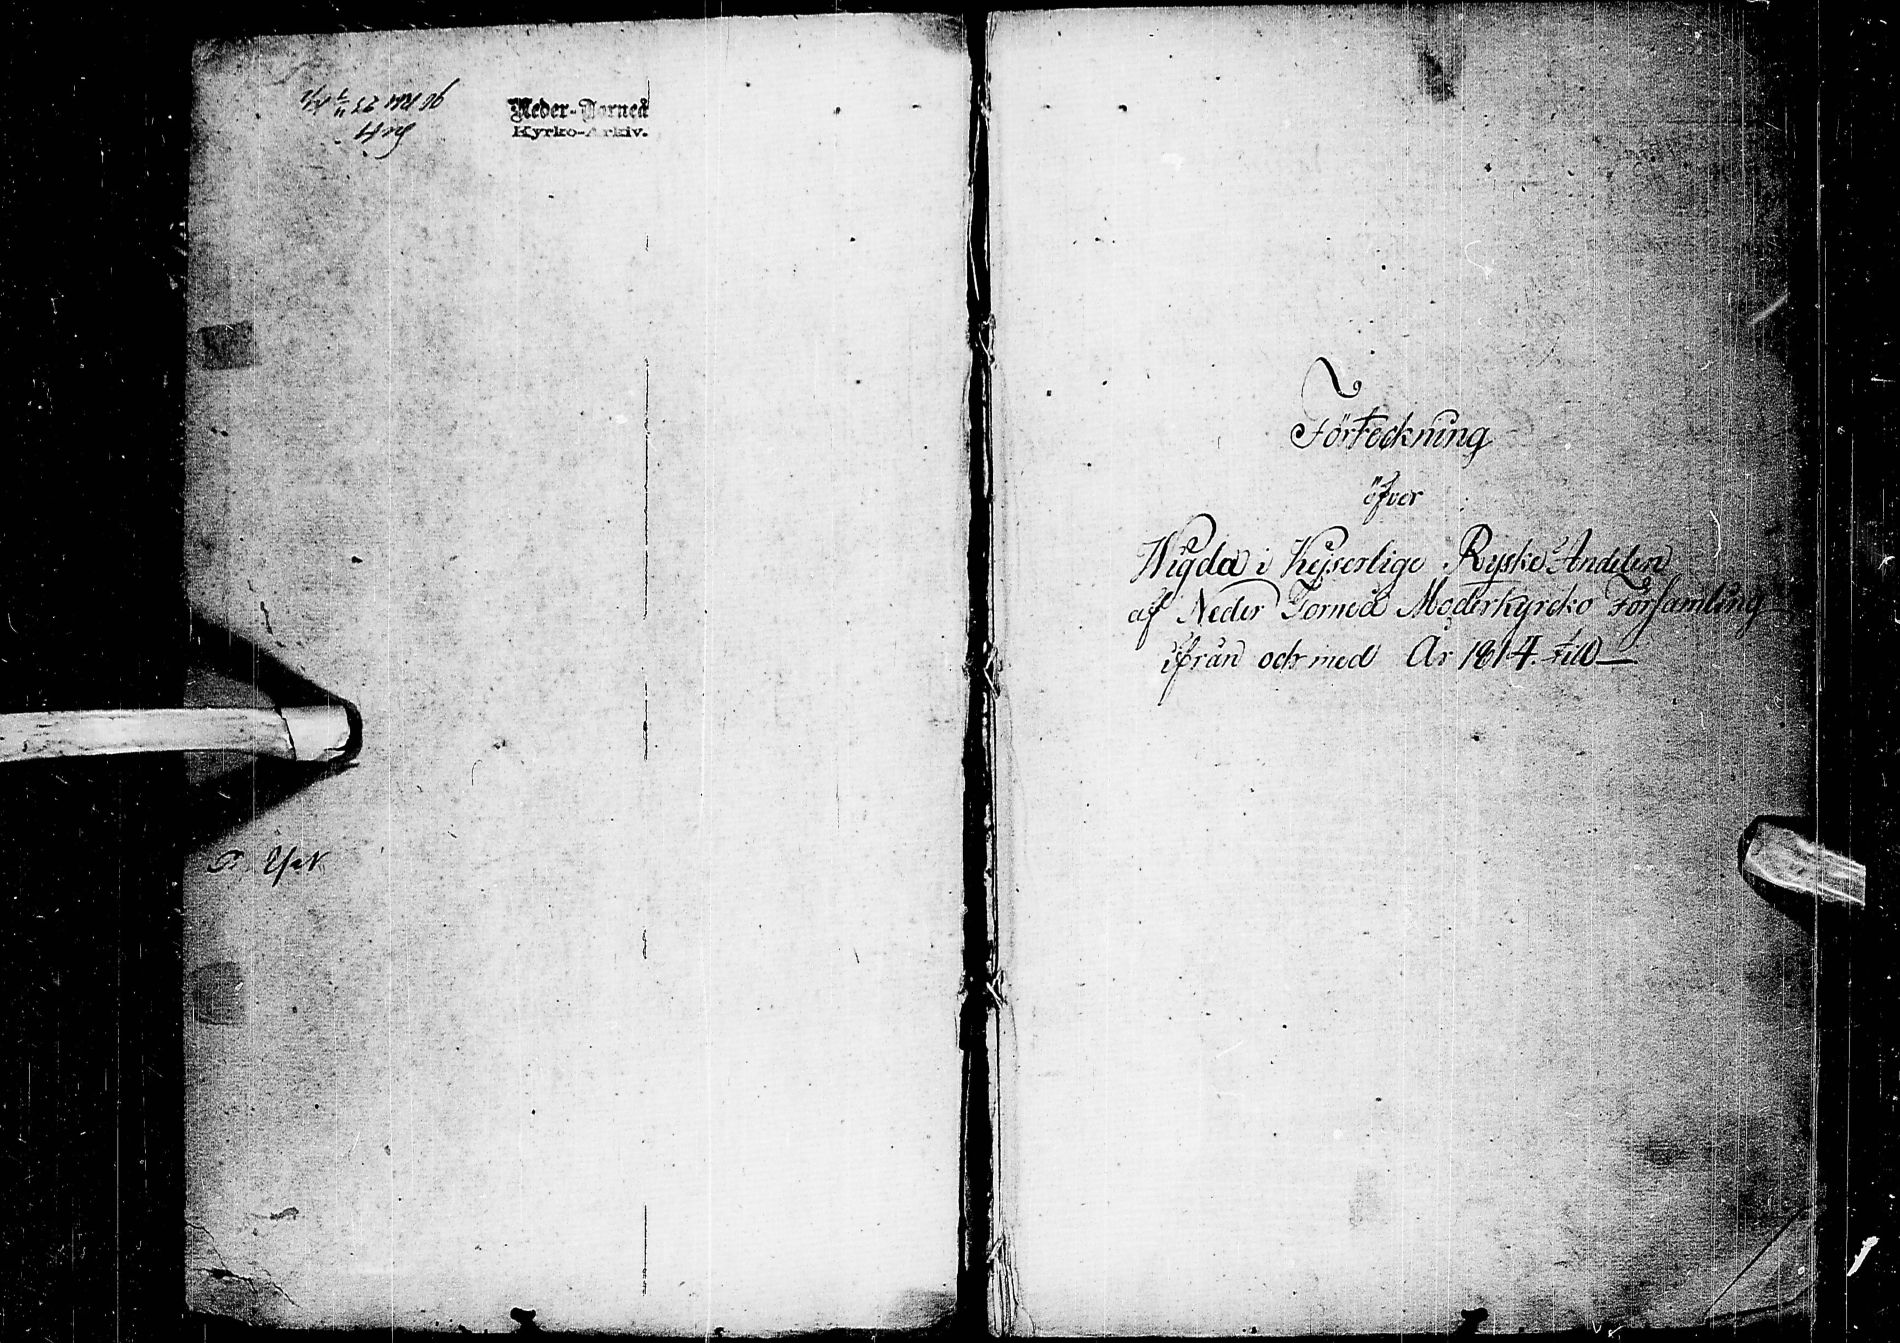 Neder-Torneå
Kyrko-Arkiv.
Förteckning
öfver
Wigda i Kejserlige Ryske Andelen
af Neder Torneå Moderkyrcko Församling
ifrån och med År 1814. till —